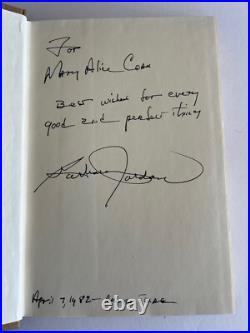 For
Mary Alice
Best wishes for every
good and perfect thing
Barbara Jordan
April 7, 1982 -
damnation-books.com